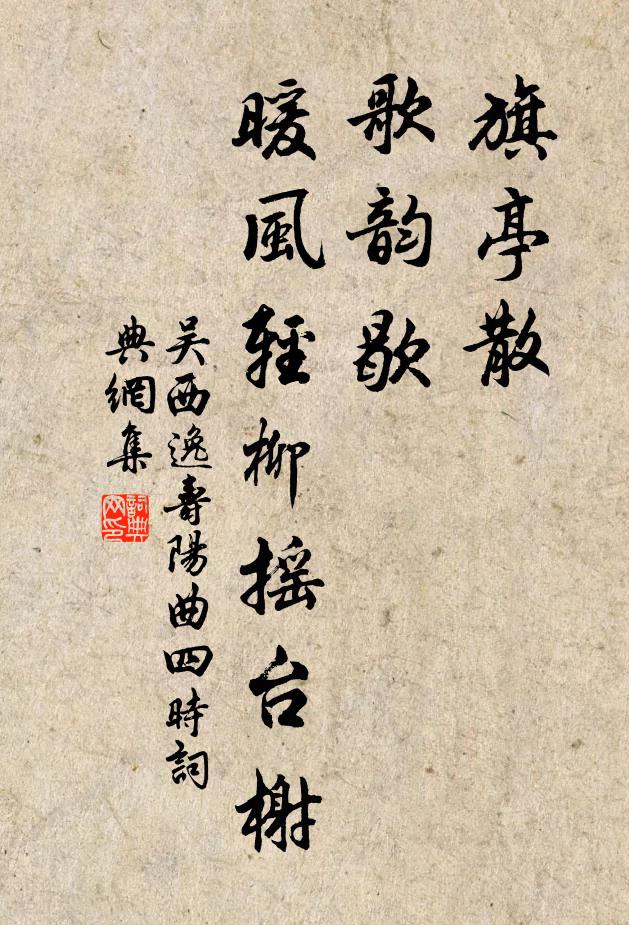 旗亭散
歌韵歇
暖風輕柳摇台榭
吴西逸壽陽曲四時詞
典網集
詞典
网印